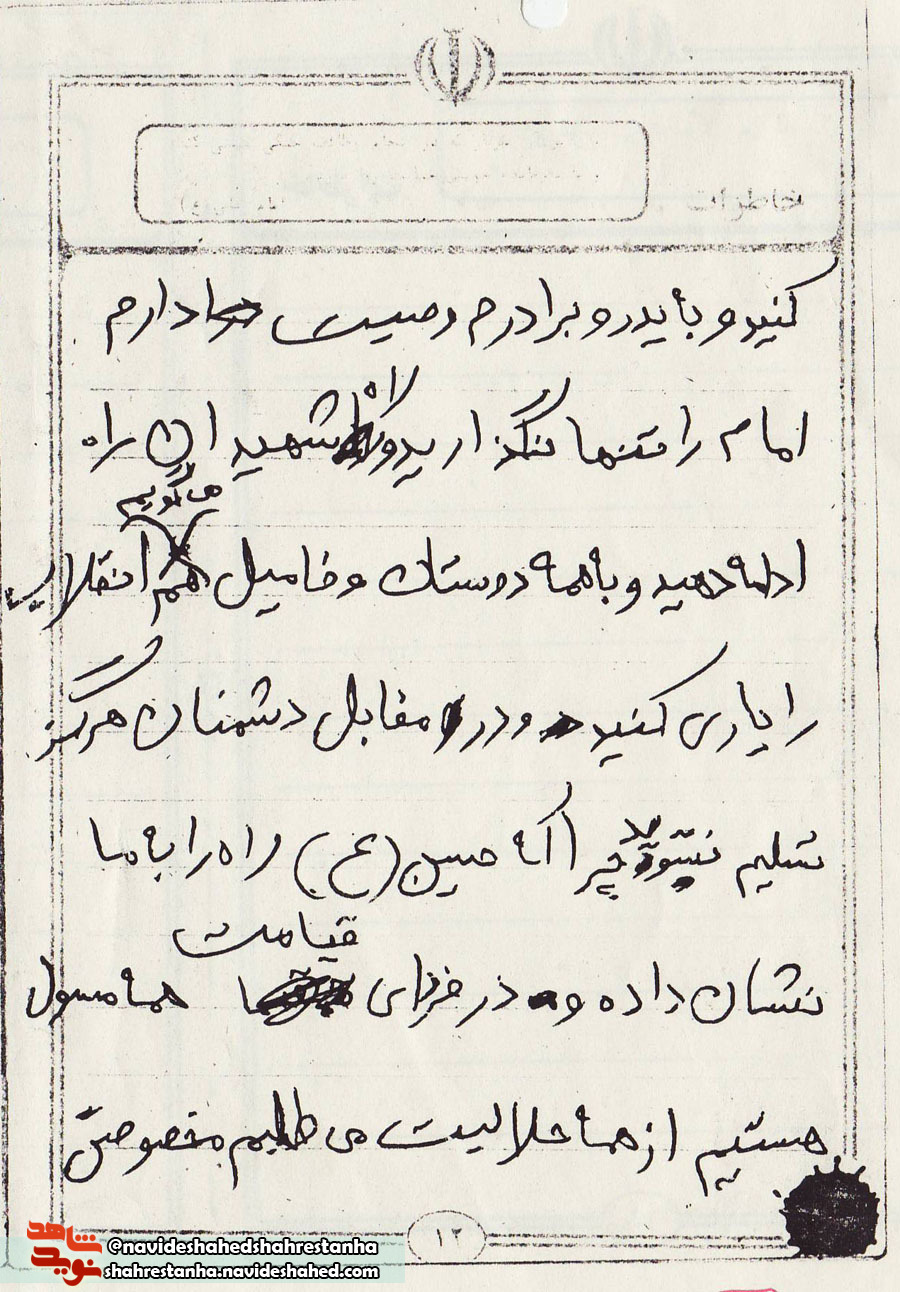 خاطرات
کنید و با پدر و برادرم وصیت دارم
امام را تنها نگذارید و راه شهیدان راه
ادامه دهید و با همه دوستان و فامیل هم می گویم انقلاب
را یاری کنید و در مقابل دشمنان هرگز
تسلیم نشوید چرا که حسین (ع) راه را به ما
نشان داده و در فردای قیامت همه مسول
هستیم از همه حلالیت می طلبیم مخصوص
۱۲
شاهد
نوید
@navideshahedshahrestanha
shahrestanha.navideshahed.com